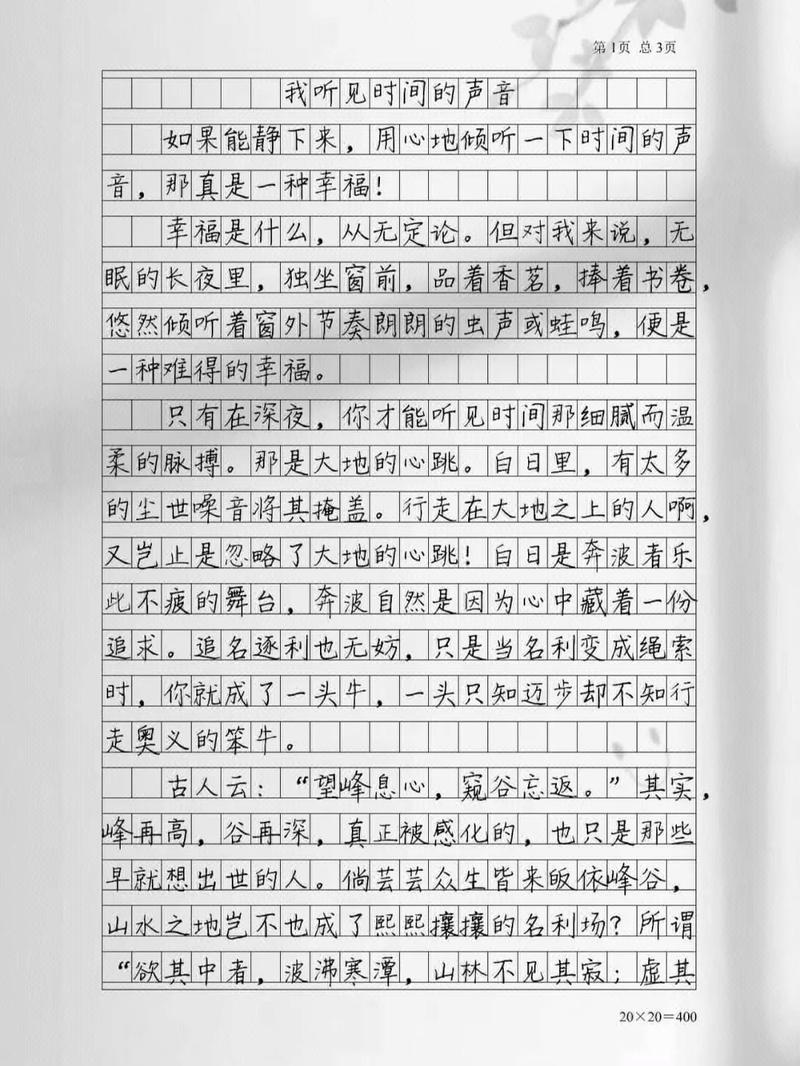 第1页 总3页
我听见时间的声音
如果能静下来，用心地倾听一下时间的声
音，那真是一种幸福！
幸福是什么，从无定论。但对我来说，无
眠的长夜里，独坐窗前，品着香茗，捧着书卷，
悠然倾听着窗外节奏朗朗的虫声或蛙鸣，便是
一种难得的幸福。
只有在深夜，你才能听见时间那细腻而温
柔的脉搏。那是大地的心跳。白日里，有太多
的尘世噪音将其掩盖。行走在大地之上的人啊，
又岂止是忽略了大地的心跳！白日是奔波者乐
此不疲的舞台，奔波自然是因为心中藏着一份
追求。追名逐利也无妨，只是当名利变成绳索
时，你就成了一头牛，一头只知迈步却不知行
走奥义的笨牛。
古人云：“望峰息心，窥谷忘返。”其实，
峰再高，谷再深，真正被感化的，也只是那些
早就想出世的人。倘芸芸众生皆来皈依峰谷，
山水之地岂不也成了熙熙攘攘的名利场？所谓
“欲其中者，波沸寒潭，山林不见其寂；虚其
20×20=400